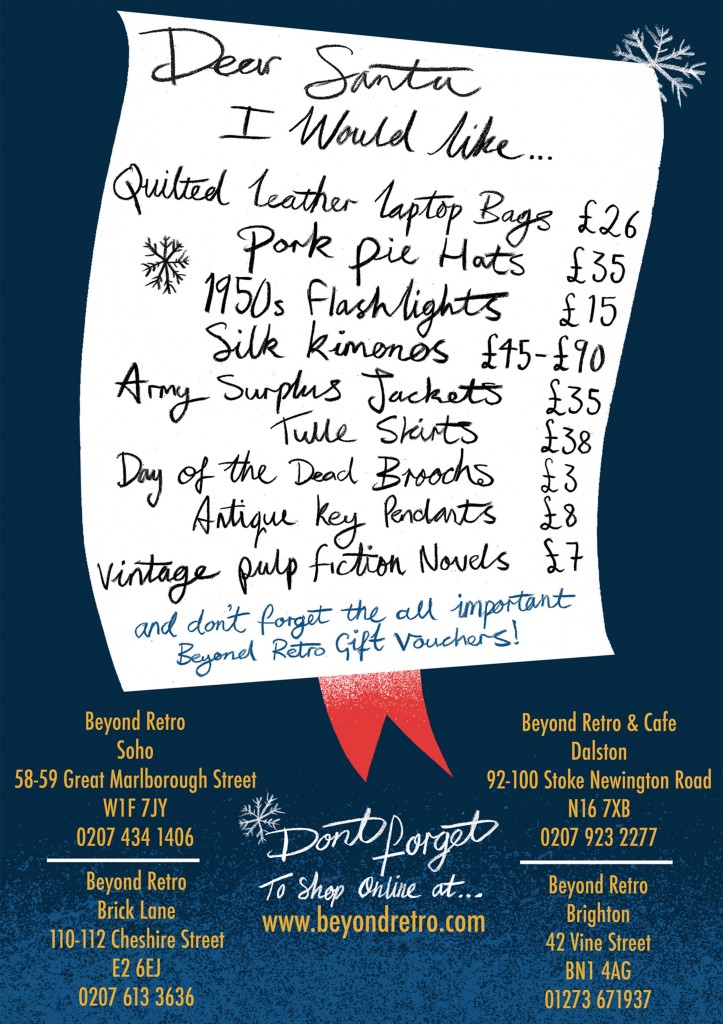 Dear Santa
I Would like...
Quilted Leather Laptop Bags £26
Pork Pie Hats £35
1950s Flashlights £15
Silk Kimonos £45-£90
Army Surplus Jackets £35
Tulle Skirts £38
Day of the Dead Broochs £3
Antique Key Pendants £8
Vintage pulp fiction Novels £7
and don't forget the all important
Beyond Retro Gift Vouchers!
Beyond Retro
Soho
58-59 Great Marlborough Street
W1F 7JY
0207 434 1406
Beyond Retro
Brick Lane
110-112 Cheshire Street
E2 6EJ
0207 613 3636
Dont forget
To Shop Online at...
www.beyondretro.com
Beyond Retro & Cafe
Dalston
92-100 Stoke Newington Road
N16 7XB
0207 923 2277
Beyond Retro
Brighton
42 Vine Street
BN1 4AG
01273 671937